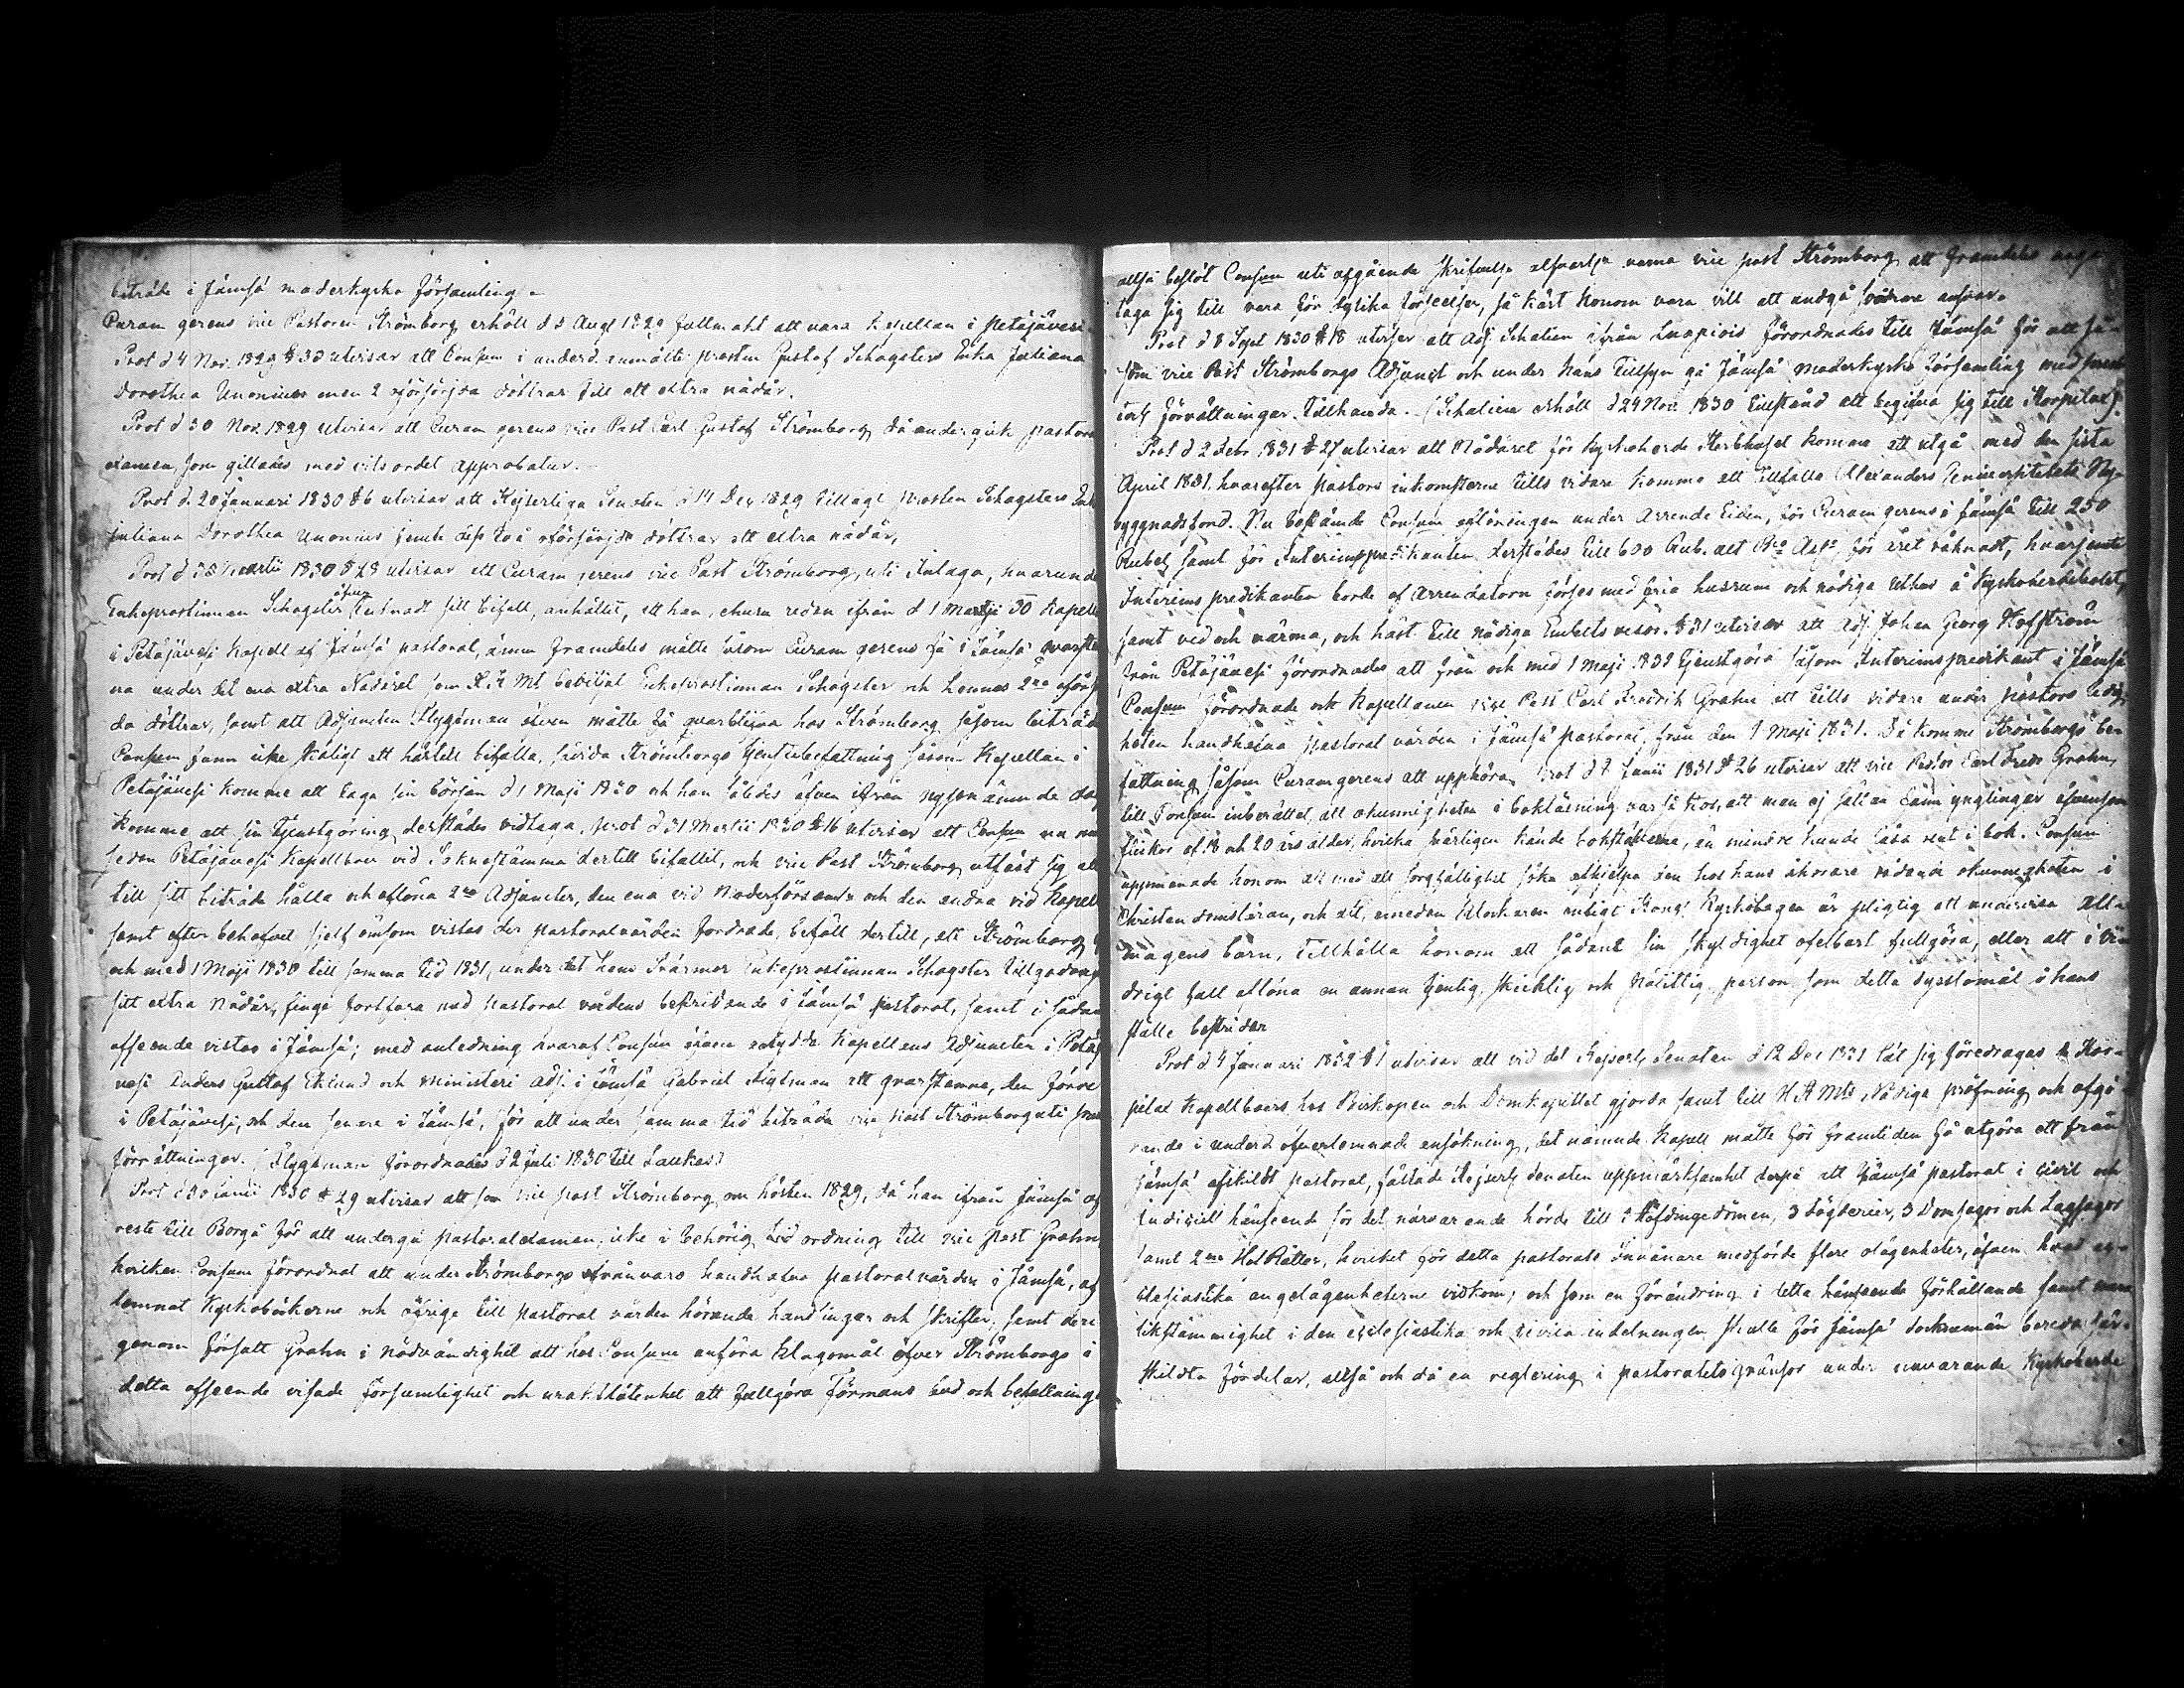 biträde i Jämsä moderkyrko församling.
Curam gerens vice Pastoren Strömborg erhöll d 5 Aug 1829 fullmakt att vara Kapellan i Petäjävesi
Prot d 4 Nov. 1829 § 33 utvisar att Consum i underd. anmälte prosten Gustaf Schogsters Enka Juliana
Dorothea Unonius men 2 oförsörjda döttrar till ett extra nådår.
Prot d 30 Nov. 1829 utvisar att Curam gerens vice Past Carl Gustaf Strömborg då undergick pastoral
examen, som gillades med vitsordet approbatur.
Prot d. 20 Januari 1830 § 6 utvisar att Kejserliga Senaten d 14 Dec 1829 tillagt prosten Schogsters Enka
Juliana Dorothea Unonius jemte dess två oförsörjda döttrar ett extra nådår,
Prot d Martii 1830 § 28 utvisar att Curam gerens vice Past Strömborg, uti Inlaga, hvarunder
Enkeprostinnan Schogster äfven tecknadt sitt bifall, anhållit, att han, ehuru redan ifrån d 1 Maji 30 Kapellan
i Petäjävesi Kapell af Jämsä pastorat, ännu framdeles måtte såsom Curam gerens få i Jämsä qvarstan
na under det ena extra Nådåret som H. K. Mt beviljat Enkeprostinnan Schogster och hennes 2ne oförsörj
da döttrar, samt att Adjuncten Flygtman äfven måtte få qvarblifva hos Strömborg såsom biträde
Consum fann icke skäligt att härtill bifalla, hvarå Strömborgs tjenstebefattning såsom Kapellan i
Petäjävesi komme att taga sin början d 1 Maji 1830 och han således äfven ifrån nyssnämnde dag
komme att sin tjenstgöring derstädes vidtaga. prot d 31 Martii 1830 § 16 utvisar att Consum nu me
sedan Petäjävesi Kapellboer vid Sockenstämma dertill bifallit, och vice Past Strömborg utfäst sig att
till sitt biträde hålla och aflöna 2ne Adjuncter, den ena vid Moderförsaml. och den andra vid Kapell
samt efter behofvet sjelf ömsom vistas der pastoralvården fordrade, biföll dertill, att Strömborg
och med 1 Maji 1830 till samma tid 1831, under det hans Svärmor Enkeprostinnan Schogster tillgodonjöt
sitt extra Nådår, finge fortfara med pastoral vårdens bestridande i Jämsä pastorat, samt i sådant
afseende vistas i Jämsä; med anledning hvaraf Consum äfven antydde Kapellans Adjuncten i Petäj
vesi Anders Gustaf Eklund och ministeri adj. i Jämsä Gabriel Flygtman att qvarstanna, den förre
i Petäjävesi, och den senare i Jämsä, för att under samma tid biträda vice Past Strömborg uti prest
förrättningar. (Flygtman förordnades d 2 Juli 1830 till Laukas)
Prot d 30 Junii 1830 § 29 utvisar att som vice past Strömborg om hösten 1829, då han ifrån Jämsä af
reste till Borgå för att undergå pastoralexamen, icke i behörig tid ordning till vice past Grahn,
hvilken Consum förordnat att under Strömborgs frånvaro handhafva pastoralvården i Jämsä, af
lemnat Kyrkoböckerne och öfrige till pastoral vården hörande handlingar och skrifter, samt deri
genom försatt Grahn i nödvändighet att hos Consum anföra klagomål öfver Strömborgs i
detta afseende visade försumlighet och uraktlåtenhet att fullgöra Förmans bud och befallning
altså beslöt Consum uti afgående skrifvelse alfvarligen varna vice past Strömborg att framdeles noga
taga sig till vara för dylika förseelser, så kärt honom vara vill att undgå svårare ansvar.
Prot d 8 Sept 1830 § 18 utvisar att Adj Schalien ifrån Luopiois förordnades till Jämsä för att så-
som vice Past Strömborgs Adjunct och under hans tillsyn gå Jämsä moderkyrko församling med prest
erl. förrättningar tillhanda. (Schalien erhöll d 24 Nov. 1830 tillstånd att begifva sig till Korpilax).
Prot d 2 Febr 1831 § 27 utvisar att Nådåret för Kyrkoherde Sterbhuset komme att utgå med den sista
April 1831. hvarefter pastors inkomsterne tills vidare komme att tillfalla Alexanders Universitetets Ny-
byggnadsfond. Nu bestämde Consum aflöningen under Arrende tiden, för Curam gerens i Jämsä till 250
Rubel samt för Interimspredikanten derstädes till 600 Rub. allt Bco Ass för året räknadt, hvarjemte
Interims predikanten borde af Arrendatorn förses med fria husrum och nödiga uthus å Kyrkoherdebolet,
samt ved och värma, och häst till nödiga Embets resor. § 31 utvisar att Adj Johan Georg Hofström
från Petäjävesi förordnades att från och med 1 Maji 1831 tjenstgöra såsom Interimspredikant i Jämsä
Consum förordnade ock Kapellanen vice Past Carl Fredrik Grahn att tills vidare under pastors ledig
heten handhafva pastoral vården i Jämsä pastorat, från den 1 Maji 1831. Då komme Strömborgs be-
fattning såsom Curam gerens att upphöra. Prot d 7 Junii 1831 § 26 utvisar att vice Pastor Carl Fredr Grahn,
till Consum inberättat, att okunnigheten i boklärning var så stor, att man ej sällan fann ynglingar äfvensom
flickor af 18 och 20 års ålder, hvilka knapligen kände bokstäfverna, än mindre kunde läsa rent i bok. Consum
uppmanade honom att med all sorgfällighet söka afhjelpa den hos hans åhörare rådande okunnigheten i
Christendomsläran, och att, emedan klockaren enligt Kongl Kyrkolagen är pligtig att undervisa All-
mogens barn, tillhålla honom att sådant sin skyldighet ofelbart fullgöra, eller att i vi-
drigt fall aflöna en annan tjenlig, skicklig och skälittig person som detta sysslomål i hans
ställe bestrider
Prot d 4 Januari 1832 § 1 utvisar att vid det Kejserl. Senaten d 12 Dec 1831 låt sig föredragas Kor-
pilax Kapellboers hos Biskopen och Domkapitlet gjorda samt till H. K. Mts Nådiga pröfning och afgö-
rande i underd öfverlemnade ansökning, det nämnde Kapell måtte för framtiden få utgöra ett från
Jämsä afskildt pastorat, fästade Kejserl. Senaten uppmärksamhet derpå att Jämsä pastorat i civil och
Judiciell hänseende för det närvarande hörde till 2 Höfdingedömen, 3 Fögderier, 3 Domsagor och Lagsagor
samt 2ne Hof Rätter, hvilket för detta pastorats Invånare medförde flere olägenheter, äfven hvad ec-
clesiastika angelägenheterne vidkom; och som en förändring i detta hänseende förhållande samt
likstämmighet i den ecclesiastika och civila indelningen, skulle för Jämsä socknemän bereda sär-
skildta fördelar, altså och då en reglering i pastoratets gränsor under nuvarande Kyrkoherde